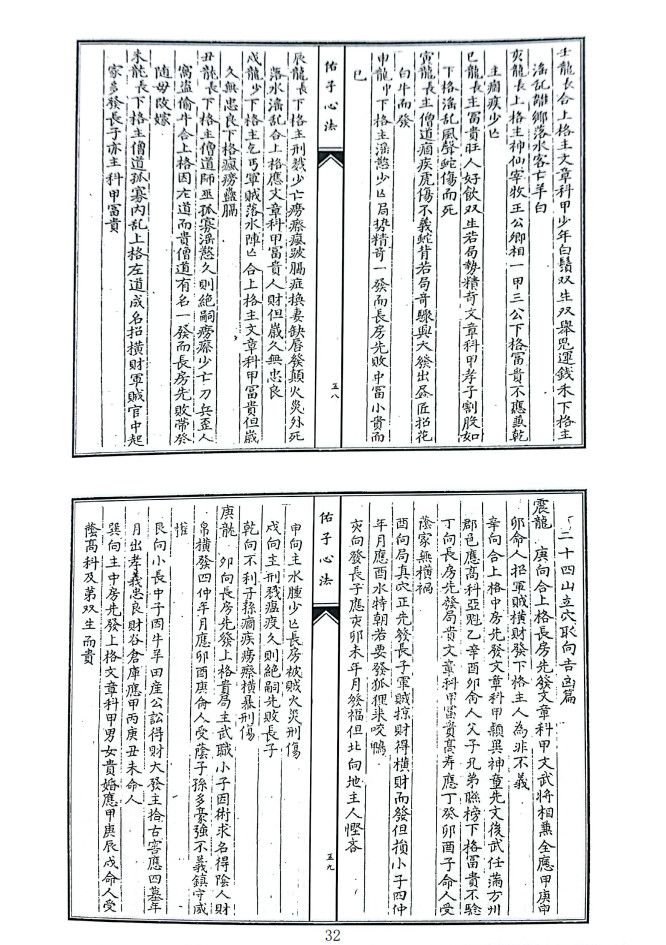 壬龍長合上格主文章科甲少年白鬚双生双舉鬼運錢禾下格主
淫乱離鄉落水客亡羊白
亥龍長上格主神仙宰牧王公卿相一甲三公下格富貴不應並乾
主痼疾少亡
巳龍長主富貴旺人好飲双生若局勢精奇文章科甲孝子割股如
下格淫乱風聲蛇傷而死
寅龍長主僧道痼疾虎傷不義蛇背若局奇驟與大發出巫匠招花
白牛而發
申龍中下格主淫慾少亡局勢精奇一發而長房先敗中富小貴而
已
佑子心法
五八
辰龍長下格主刑戮少亡癆瘵瘋跛膈症換妻缺唇發顛火災外死
落水淫乱合上格應文章科甲富貴人財但歲久無忠良
戍龍少下格主乞丐軍賊落水陣亡合上格主文章科甲富貴但歲
久無忠良下格瘋癆蠱膈
丑龍長下格主僧道師巫孤寡淫慾久則絕嗣癆瘵少亡刀兵歪人
窩盜偷牛合上格因左道而貴僧道有名一發而長房先敗帶發
随母改嫁
未龍長下格主僧道孤寡内乱上格左道成名招橫財軍賊官中起
家多發長子亦主科甲富貴
二十四山立穴取向吉凶篇
震龍 庚向合上格長房先發文章科甲文武將相兼全應甲庚申
卯命人招軍賊橫財發下格主人為非不義
辛向合上格中房先發文章科甲穎異神童先文後武任滿方州
郡邑應高科亞魁乙辛酉卯命人父子兄弟聯榜下格富貴不驗
丁向長房先發局貴文章科甲富貴高寿應丁癸卯酉子命人受
蔭家無橫禍
酉向局真穴正先發長子軍賊掠財得橫財而發但損小子四仲
年月應酉水特朝若要發狐狸来咬鴨
亥向發長子應亥卯未年月發福但北向地主人慳吝
佑子心法
五九
申向主水腫少亡長房被賊火災刑傷
戍向主刑戮瘟疫久則絕嗣先敗長子
乾向不利子孫痼疾癆瘵橫暴刑傷
庚龍 卯向長房先發上格貴局主武職小子因術求名得陰人財
帛橫發四仲年月應卯酉庚命人受蔭子孫多豪強不義鎮守威
權
艮向小長中子因牛羊田産公訟得財大發主拾古窖應四墓年
月出孝義忠良財谷倉庫應甲丙庚丑未命人
巽向主中房先發上格文章科甲男女貴婚應甲庚辰戍命人受
蔭高科及第双生而貴
32